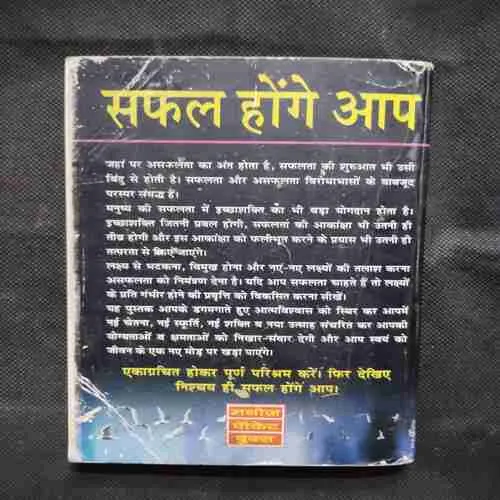 सफल होंगे आप
जहां पर असफलता का अंत होता है, सफलता की शुरुआत भी उसी
बिंदु से होती है। सफलता और असफलता विरोधाभासों के बावजूद
परस्पर संबद्ध हैं।
मनुष्य की सफलता में इच्छाशक्ति का भी बड़ा योगदान होता है।
इच्छाशक्ति जितनी प्रबल होगी, सफलता की आकांक्षा भी उतनी ही
तीव्र होगी और इस आकांक्षा को फलीभूत करने के प्रयास भी उतनी ही
तत्परता से किए जाएंगे।
लक्ष्य से भटकना, विमुख होना और नए-नए लक्ष्यों की तलाश करना
असफलता को निमंत्रण देना है। यदि आप सफलता चाहते हैं तो लक्ष्यों
के प्रति गंभीर होने की प्रवृत्ति को विकसित करना सीखें।
यह पुस्तक आपके डगमगाते हुए आत्मविश्वास को स्थिर कर आपमें
नई चेतना, नई स्फूर्ति, नई शक्ति व नया उत्साह संचरित कर आपकी
योग्यताओं व क्षमताओं को निखार-संवार देगी और आप स्वयं को
जीवन के एक नए मोड़ पर खड़ा पाएंगे।
एकाग्रचित होकर पूर्ण परिश्रम करें। फिर देखिए
निश्चय ही सफल होंगे आप।
मनोज
पॉकेट
बुक्स